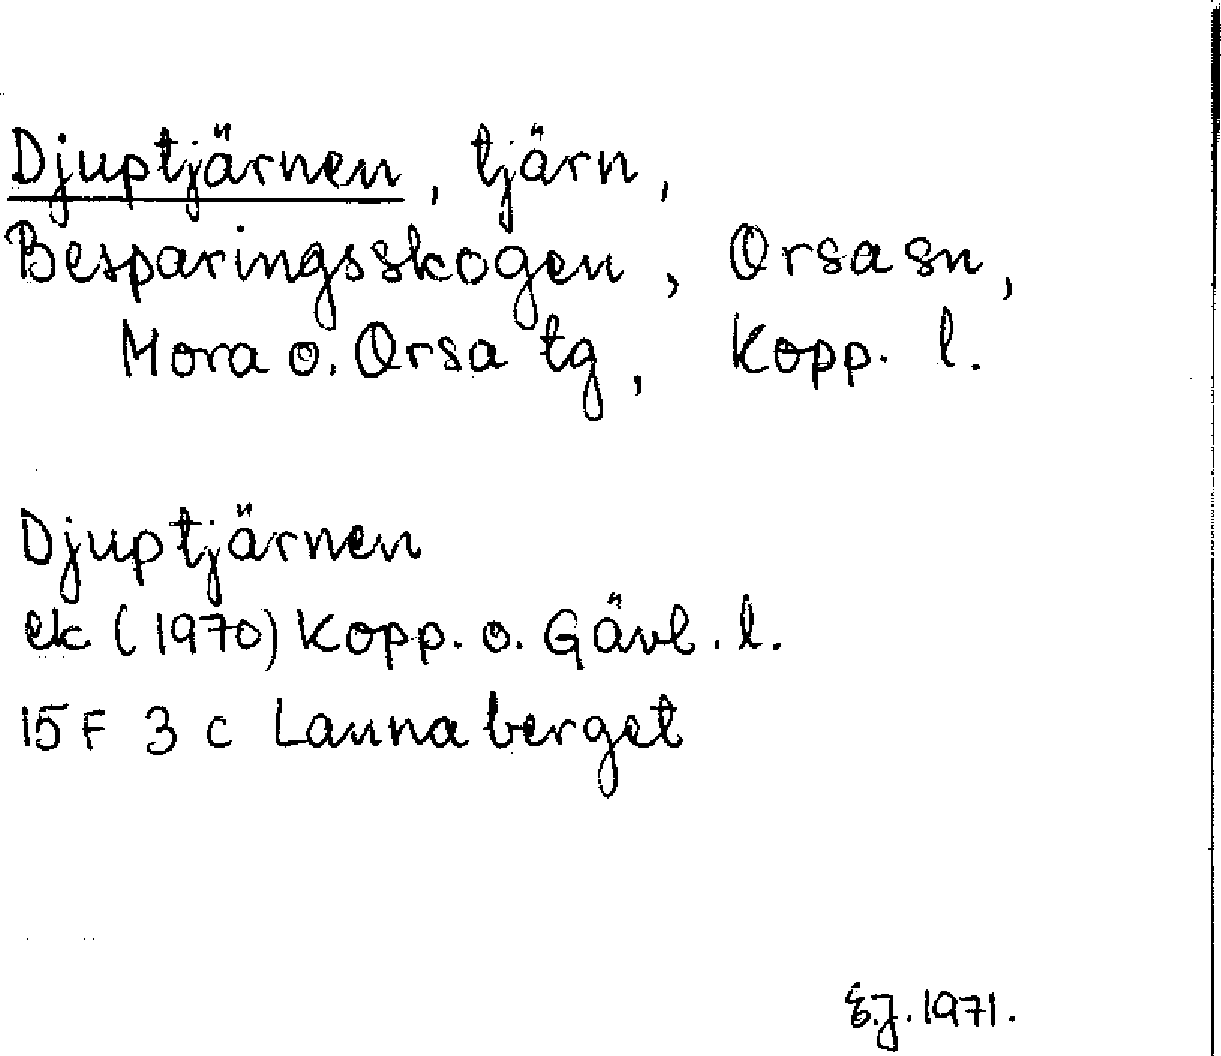 Djuptjärnen, tjärn,
Besparingsskogen, Orsa sn,
Mora o. Orsa tg, Kopp. l.
Djuptjärnen
ek (1970) Kopp. o. Gävl. l.
15 F 3 c Launaberget
E.J. 1971.